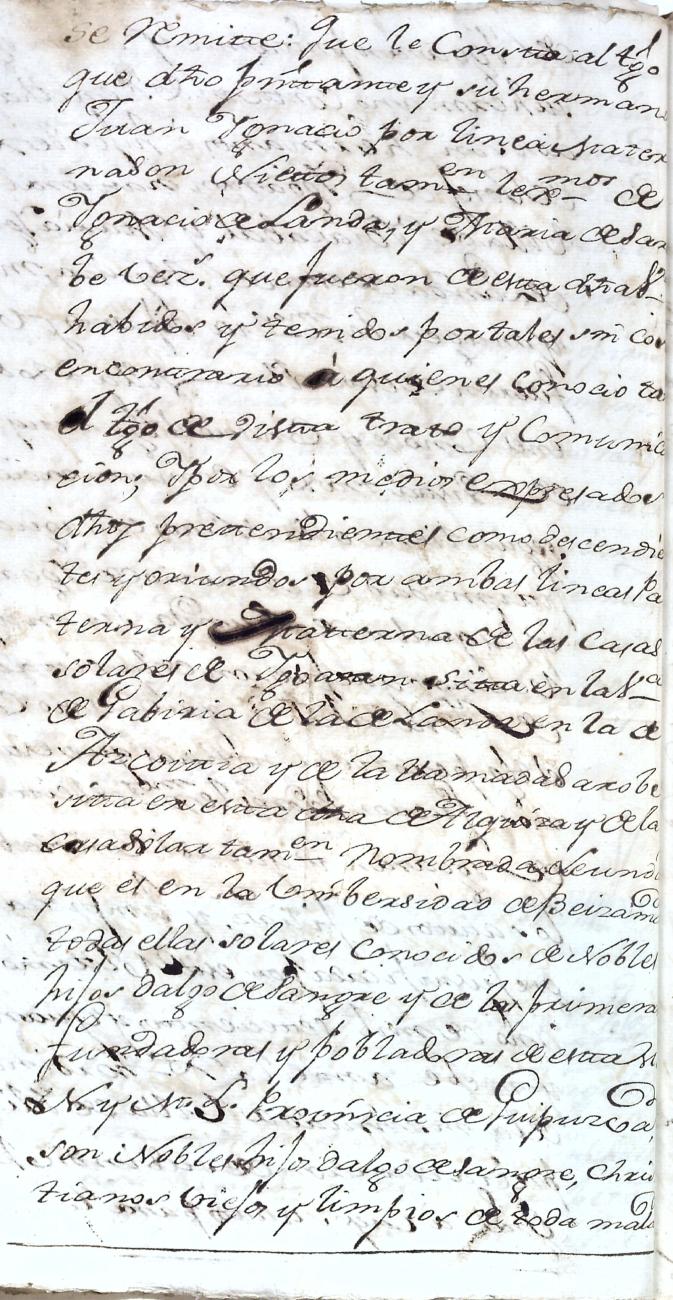 se remitte: que le Consta al tgo
que dho prettante y su herman
Juan Ygnacio por linea Mater
na son Niettos tamen lexmos de
Ygnacio de Landa, y Maria de Sar
be vezs. que fueron de esta dha Va
habidos y tenidos por tales sin co
encontrario à quienes conocio ta
el tgo de vista trato y Comunica
cion; Y por los medios expresados
dhos prettendientes como descendie
tes y oriundos por ambas lineas Pa
terna y Matterna de las Casas
solares de sitta en la Va
de Gabiria de la de Landa en la de
Azcoittia y de la llamada Sarobe
sitta en esta dha de y de la
casa solar tamen Nombrada
que es en la Unibersidad de Beizama
todas ellas solares Conocidos de Nobles
hijos dalgo de sangre y de las primera
fundadoras y pobladoras de esta M
N. y M. L. Provincia de Guipuzcoa,
son Nobles hijos dalgo de sangre, chris
tianos viejos y limpios de toda mala